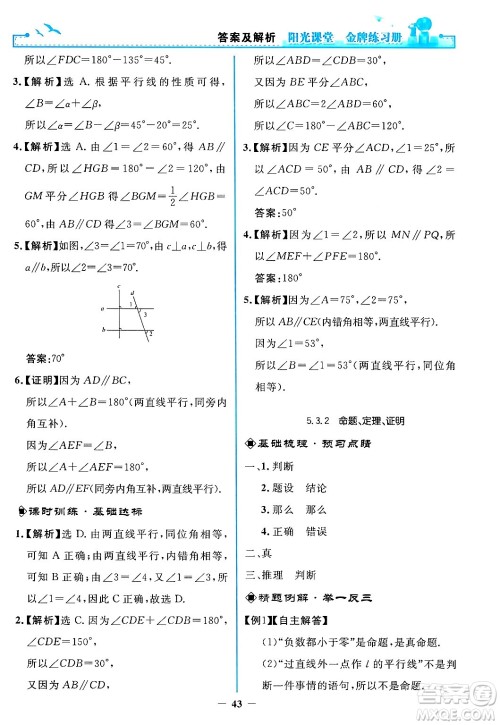 答案及解析 阳光课堂 金牌练习册
所以∠BOF=180°-135°=45°.
3.【解析】选 A. 根据平行线的性质可得，
∠B=∠α+∠β，
所以∠α=∠B-∠β=45°-20°=25°.
4.【解析】选 A. 由∠1=∠2=60°，得 AB
∥CD，所以∠HGB=180°-∠2=120°，由
GM 平分∠HGB，得∠BGM=1/2∠HGB
=60°，由 AB∥CD，得∠3=∠BGM=60°.
5.【解析】如图，∠3=∠1=70°，由 c⊥a，c⊥b，得
a∥b，所以∠2=∠3=70°.
c
d
1
a
3
2
b
答案：70°
6.【证明】因为 AD∥BC，
所以∠A+∠B=180°（两直线平行，同旁内
角互补）.
因为∠A=∠C，
所以∠C+∠B=180°.
所以 AB∥CD（同旁内角互补，两直线平行）.
课时训练·基础达标
1.【解析】选 D. 由两直线平行，同位角相等，
可知 A 正确；由两直线平行，内错角相等，
可知 B 正确；由两直线平行，同旁内角互
补，可知 C 正确；由∠1=∠3，∠3=∠4，
得∠1=∠4，故选 D.
2.【解析】选 C. 因为∠CDE+∠CDF=
180°，∠CDE=150°，
所以∠CDF=30°.
又因为 AB∥CD，
所以∠ABD=∠CDF=30°.
又因为 BE 平分∠ABC，
所以∠ABC=2∠ABD=60°.
所以∠C=180°-∠ABC=120°.
3.【解析】因为 CE 平分∠ACD，∠ACD=
100°，所以∠ACE=∠ECD=50°.
因为 AB∥CD，所以∠A+∠ACD=180°，
∠1=∠ECD=50°.
答案：50°
4.【解析】因为∠1=∠2，所以 MN∥PQ，所
以∠MEF+∠PFE=180°.
答案：180°
5.【解析】因为∠2=∠A=75°，∠A=75°，
所以∠2=75°（内错角相等，两直线平行）.
因为∠1=53°，
所以∠B=∠1=53°（两直线平行，同位角
相等）.
5.3.2 命题、定理、证明
基础梳理·预习点睛
一、1. 判断
2. 题设 结论
3. 那么
4. 正确 错误
二、真
三、推理 判断
精题例解·举一反三
【例1】【自主解答】
(1)“负数都小于零”是命题.
(2)“过直线外一点作 l 的平行线”不是判
断一件事情的语句，所以不是命题.
43